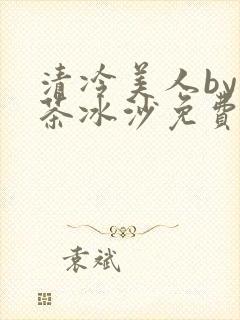 清冷美人by
茶冰沙免費
袁斌